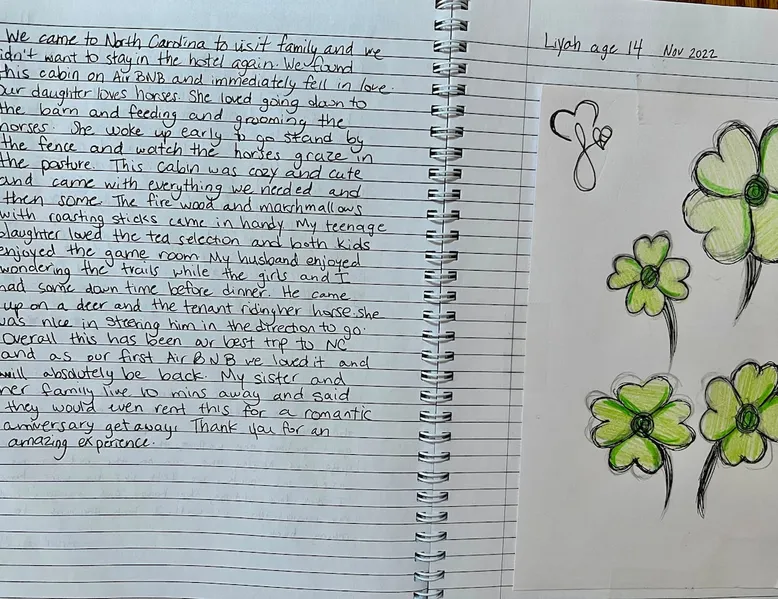 We came to North Carolina to visit family and we
idn't want to stay in the hotel again. We found
this cabin on Air BNB and immediately fell in love.
Our daughter loves horses. She loved going down to
the barn and feeding and grooming the
horses. She woke up early to go stand by
the fence and watch the horses graze in
the pasture. This cabin was cozy and cute
and came with everything we needed and
then some. The fire wood and marshmallows
with roasting sticks came in handy. My teenage
daughter loved the tea selection and both kids
enjoyed the game room. My husband enjoyed
wondering the trails while the girls and I
had some down time before dinner. He came
up on a deer and the tenant riding her horse. She
was nice in steering him in the direction to go.
Overall this has been our best trip to NC
and as our first Air BNB we loved it and
will absolutely be back. My sister and
her family live 10 mins away and said
they would even rent this for a romantic
anniversary get away. Thank you for an
amazing experience.
Liyah age 14 Nov 2022